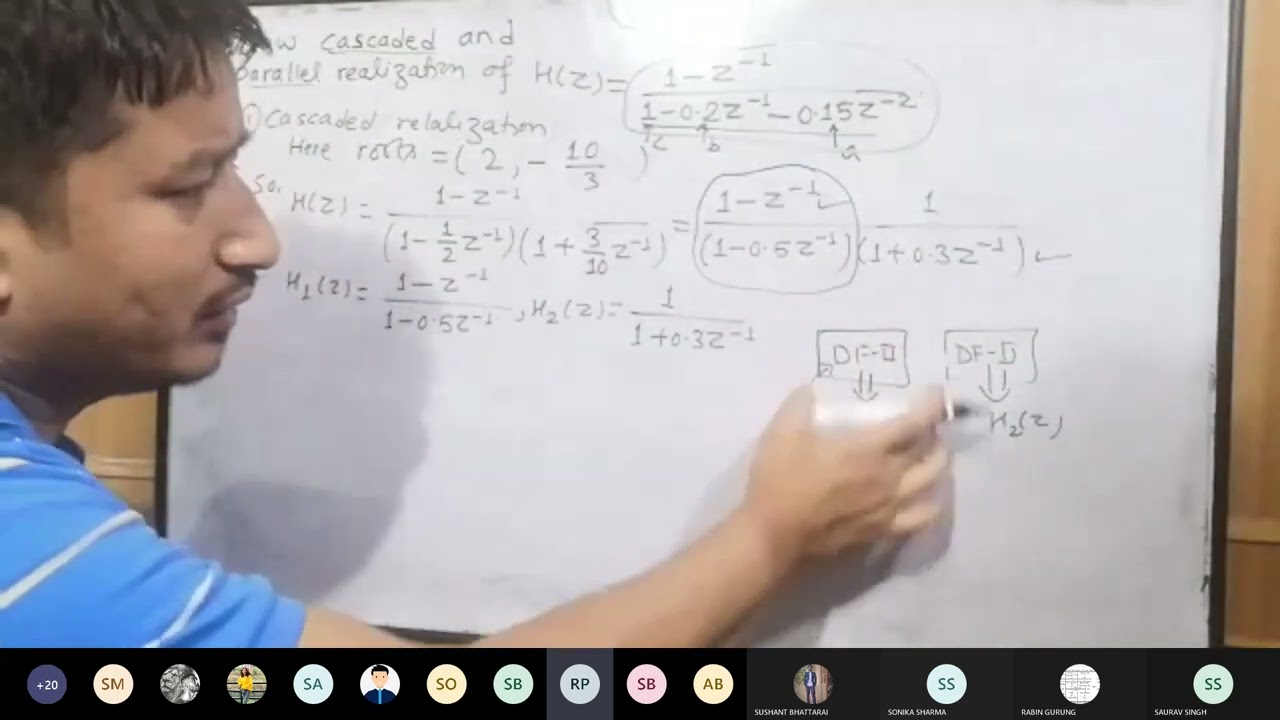 cascaded and
parallel realization of H(z) = 1 - z^-1 / 1 - 0.2z^-1 - 0.15z^-2
c b a
Cascaded relalization
Here roots = (2, - 10/3)
So, H(z) = 1 - z^-1 / (1 - 1/2 z^-1)(1 + 3/10 z^-1) = 1 - z^-1 / (1 - 0.5z^-1) 1 / (1 + 0.3z^-1)
H1(z) = 1 - z^-1 / 1 - 0.5z^-1 , H2(z) = 1 / 1 + 0.3z^-1
DF-II DF-II
H2(z)
+20 SM SA SO SB RP SB AB SS SS
SUSHANT BHATTARAI SONIKA SHARMA RABIN GURUNG SAURAV SINGH